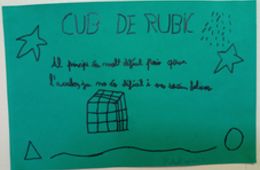 CUB DE RUBIC
Al principi és molt difícil però quan
l'acabes ja no és difícil i